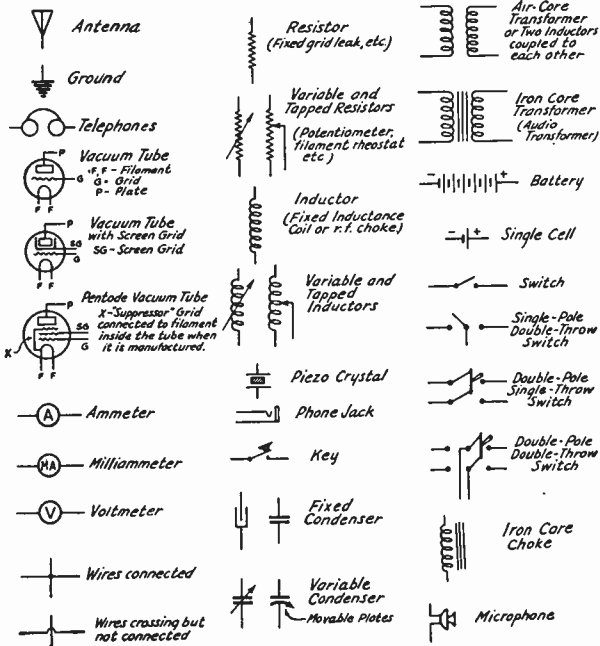 Antenna
Ground
Telephones
P
G
F F
Vacuum Tube
F, F - Filament
G - Grid
P - Plate
SG
G
F F
Vacuum Tube
with Screen Grid
SG - Screen Grid
P
SG
G
X
F F
Pentode Vacuum Tube
X-"Suppressor" Grid
connected to filament
inside the tube when
it is manufactured.
A
Ammeter
MA
Milliammeter
V
Voltmeter
Wires connected
Wires crossing but
not connected
Resistor
(Fixed grid leak, etc.)
Variable and
Tapped Resistors
(Potentiometer,
filament rheostat
etc)
Inductor
(Fixed Inductance
Coil or r.f. choke)
Variable and
Tapped
Inductors
Piezo Crystal
Phone Jack
Key
Fixed
Condenser
Variable
Condenser
Movable Plates
Air-Core
Transformer
or Two Inductors
coupled to
each other
Iron Core
Transformer
(Audio
Transformer)
- +
Battery
- +
Single Cell
Switch
Single-Pole
Double-Throw
Switch
Double-Pole
Single-Throw
Switch
Double-Pole
Double-Throw
Switch
Iron Core
Choke
Microphone